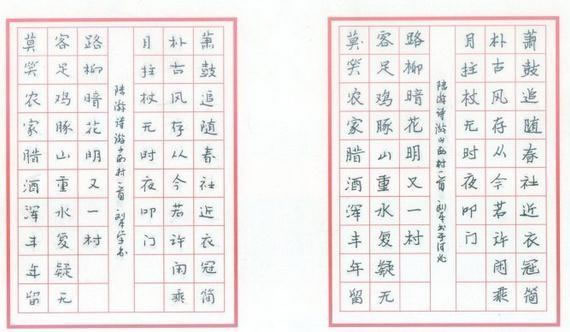 莫笑农家腊酒浑丰年留
客足鸡豚山重水复疑无
路柳暗花明又一村
萧鼓追随春社近衣冠简
朴古风存从今若许闲乘
月拄杖无时夜叩门
陆游诗游山西村一首
莫笑农家腊酒浑丰年留
客足鸡豚山重水复疑无
路柳暗花明又一村
萧鼓追随春社近衣冠简
朴古风存从今若许闲乘
月拄杖无时夜叩门
陆游诗游山西村一首